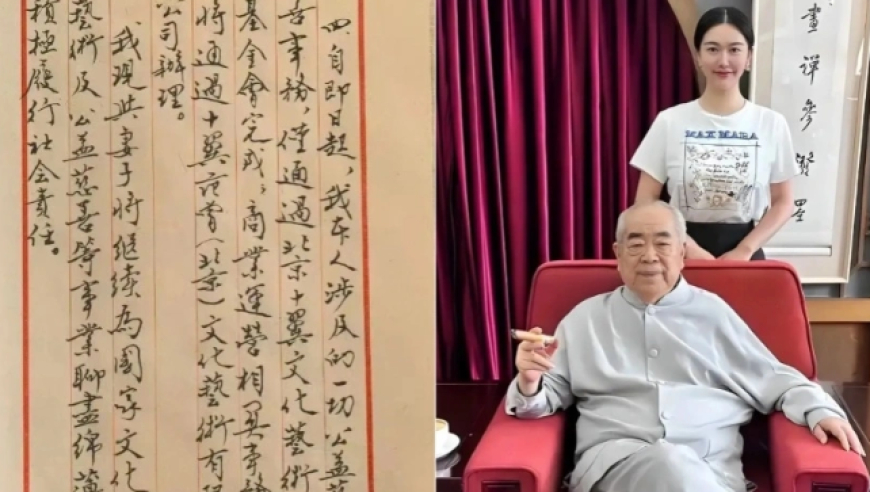 四自即日起，我本人涉及的一切公益
善事務，僅通過北京十翼文化藝術
基金會完成；商業運營相關事務
將通過十翼范曾（北京）文化藝術有限
公司辦理。
我現與妻子將繼續為國家文化
藝術及公益慈善等事業聊盡綿薄
積極履行社會責任。
MAX MARA
畫禪參